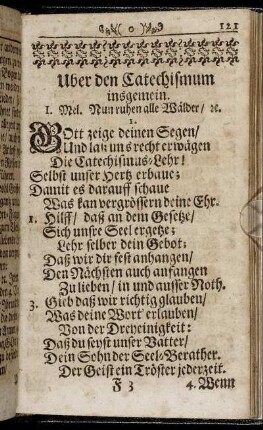 o
121
Uber den Catechismum
insgemein.
1. Mel. Nun ruhen alle Wälder/ ꝛc.
1.
GOtt zeige deinen Segen/
Und laß uns recht erwägen
Die Catechismus-Lehr!
Selbst unser Hertz erbaue;
Damit es darauff schaue
Was kan vergrössern deine Ehr.
2. Hilff/ daß an dem Gesetze/
Sich unsre Seel ergetze;
Lehr selber dein Gebot;
Daß wir dir fest anhangen/
Den Nächsten auch umfangen
Zu lieben/ in und ausser Noth.
3. Gieb daß wir richtig glauben/
Was deine Wort erlauben/
Von der Dreyeinigkeit:
Daß du seyst unser Vatter/
Dein Sohn der Seel-Berather.
Der Geist ein Tröster jederzeit.
F 3
4. Wenn